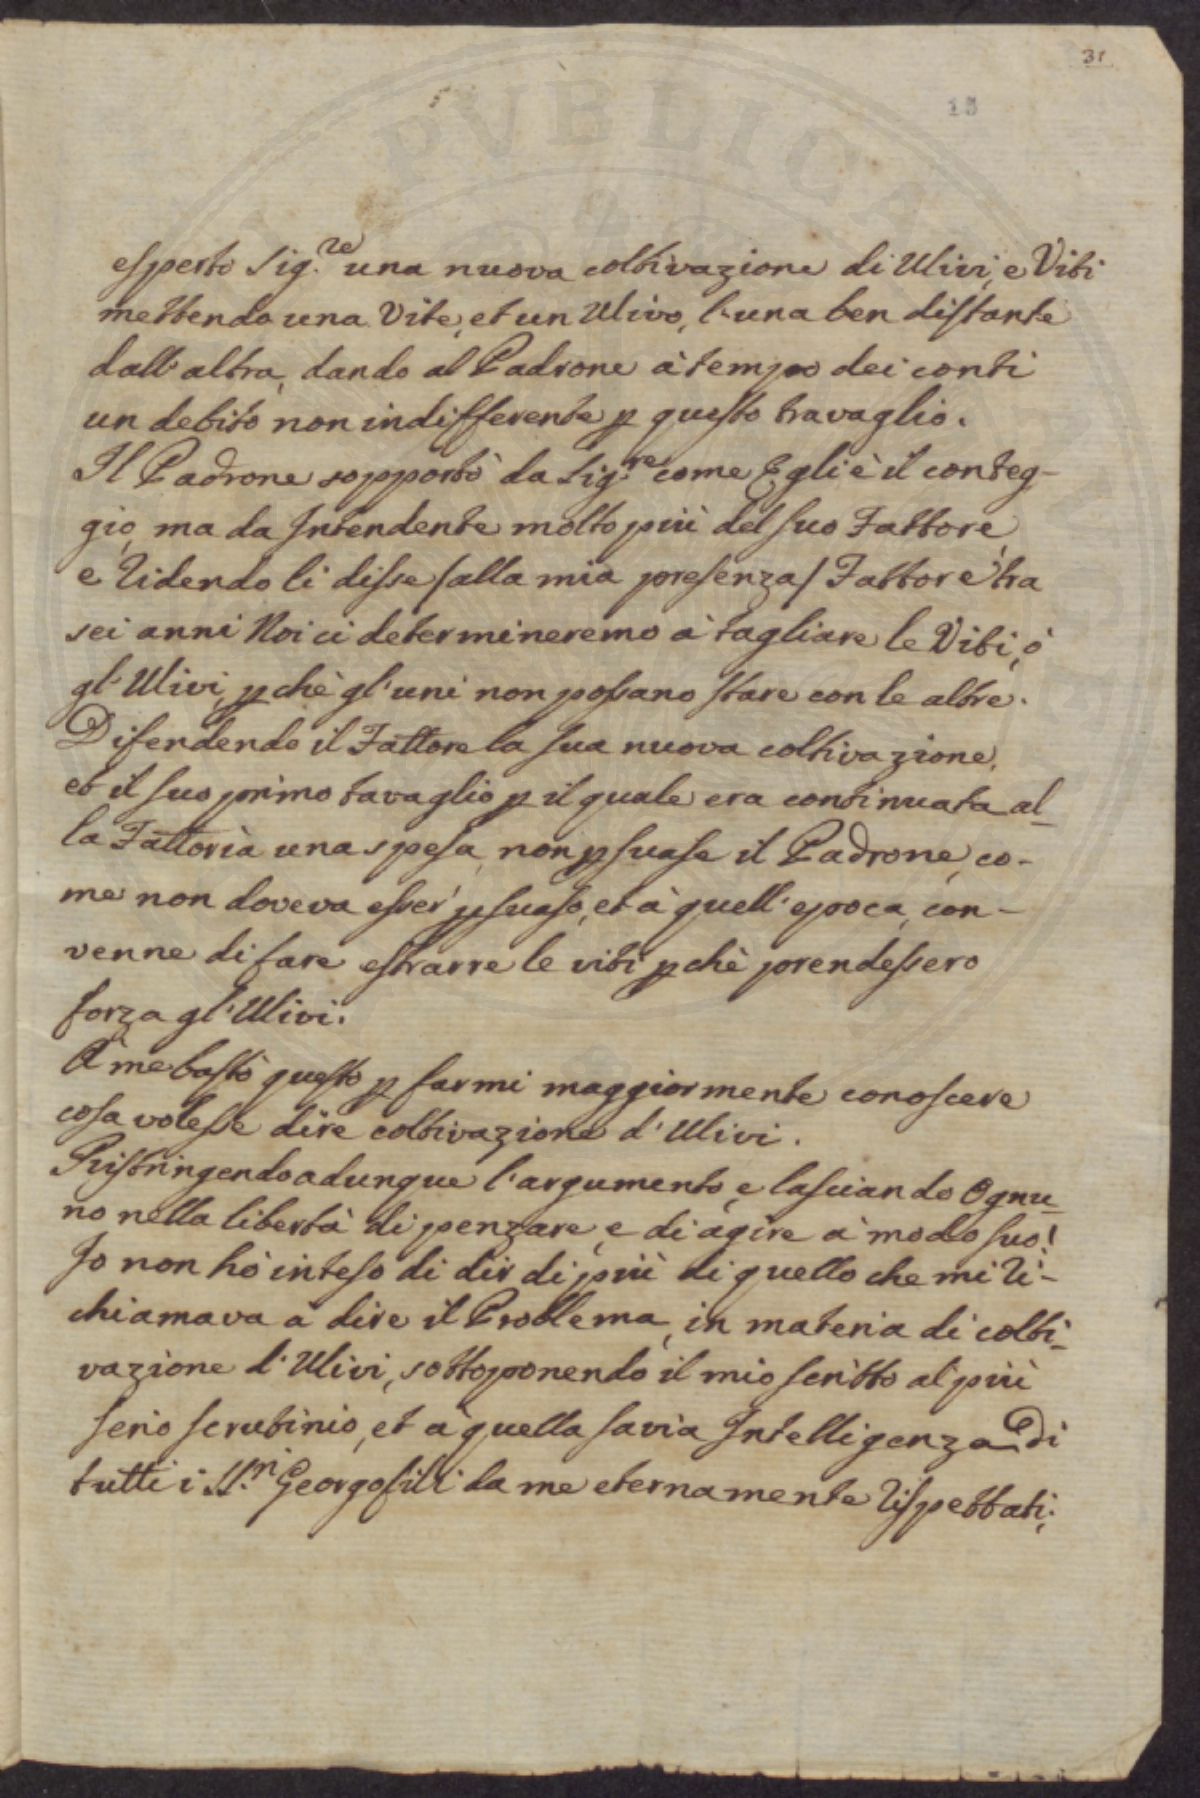 31
15
PVBLICA
esperto Sig.re una nuova coltivazione di Ulivi, e Viti
mettendo una Vite, et un Ulivo, l'una ben distante
dall'altra, dando al Padrone à tempo dei conti
un debito non indifferente p questo travaglio.
Il Padrone sopportò da Sig.re come Egli è il conteg-
gio, ma da Intendente molto più del suo Fattore
e ridendo li disse /alla mia presenza/ Fattore tra
sei anni Noi ci determineremo à tagliare le Viti, ò
gl'Ulivi, pchè gl'uni non possano stare con le altre.
Difendendo il Fattore la sua nuova coltivazione,
et il suo primo tavaglio p il quale era continuata al-
la Fattoria una spesa, non psuase il Padrone, co-
me non doveva esser psuaso, et à quell'epoca, con-
venne di fare estrarre le viti pchè prendessero
forza gl'Ulivi.
A me bastò questo p farmi maggiormente conoscere
cosa volesse dire coltivazione d'Ulivi.
Ristringendo adunque l'argumento, e lasciando Ognu-
no nella libertà di penzare, e di agire à modo suo!
Io non hò inteso di dir di più di quello che mi ri-
chiamava a dire il Problema, in materia di colti-
vazione d'Ulivi, sottoponendo il mio scritto al più
serio scrutinio, et à quella savia Intelligenza di
tutti i SS.ri Georgofili da me eternamente rispettati;